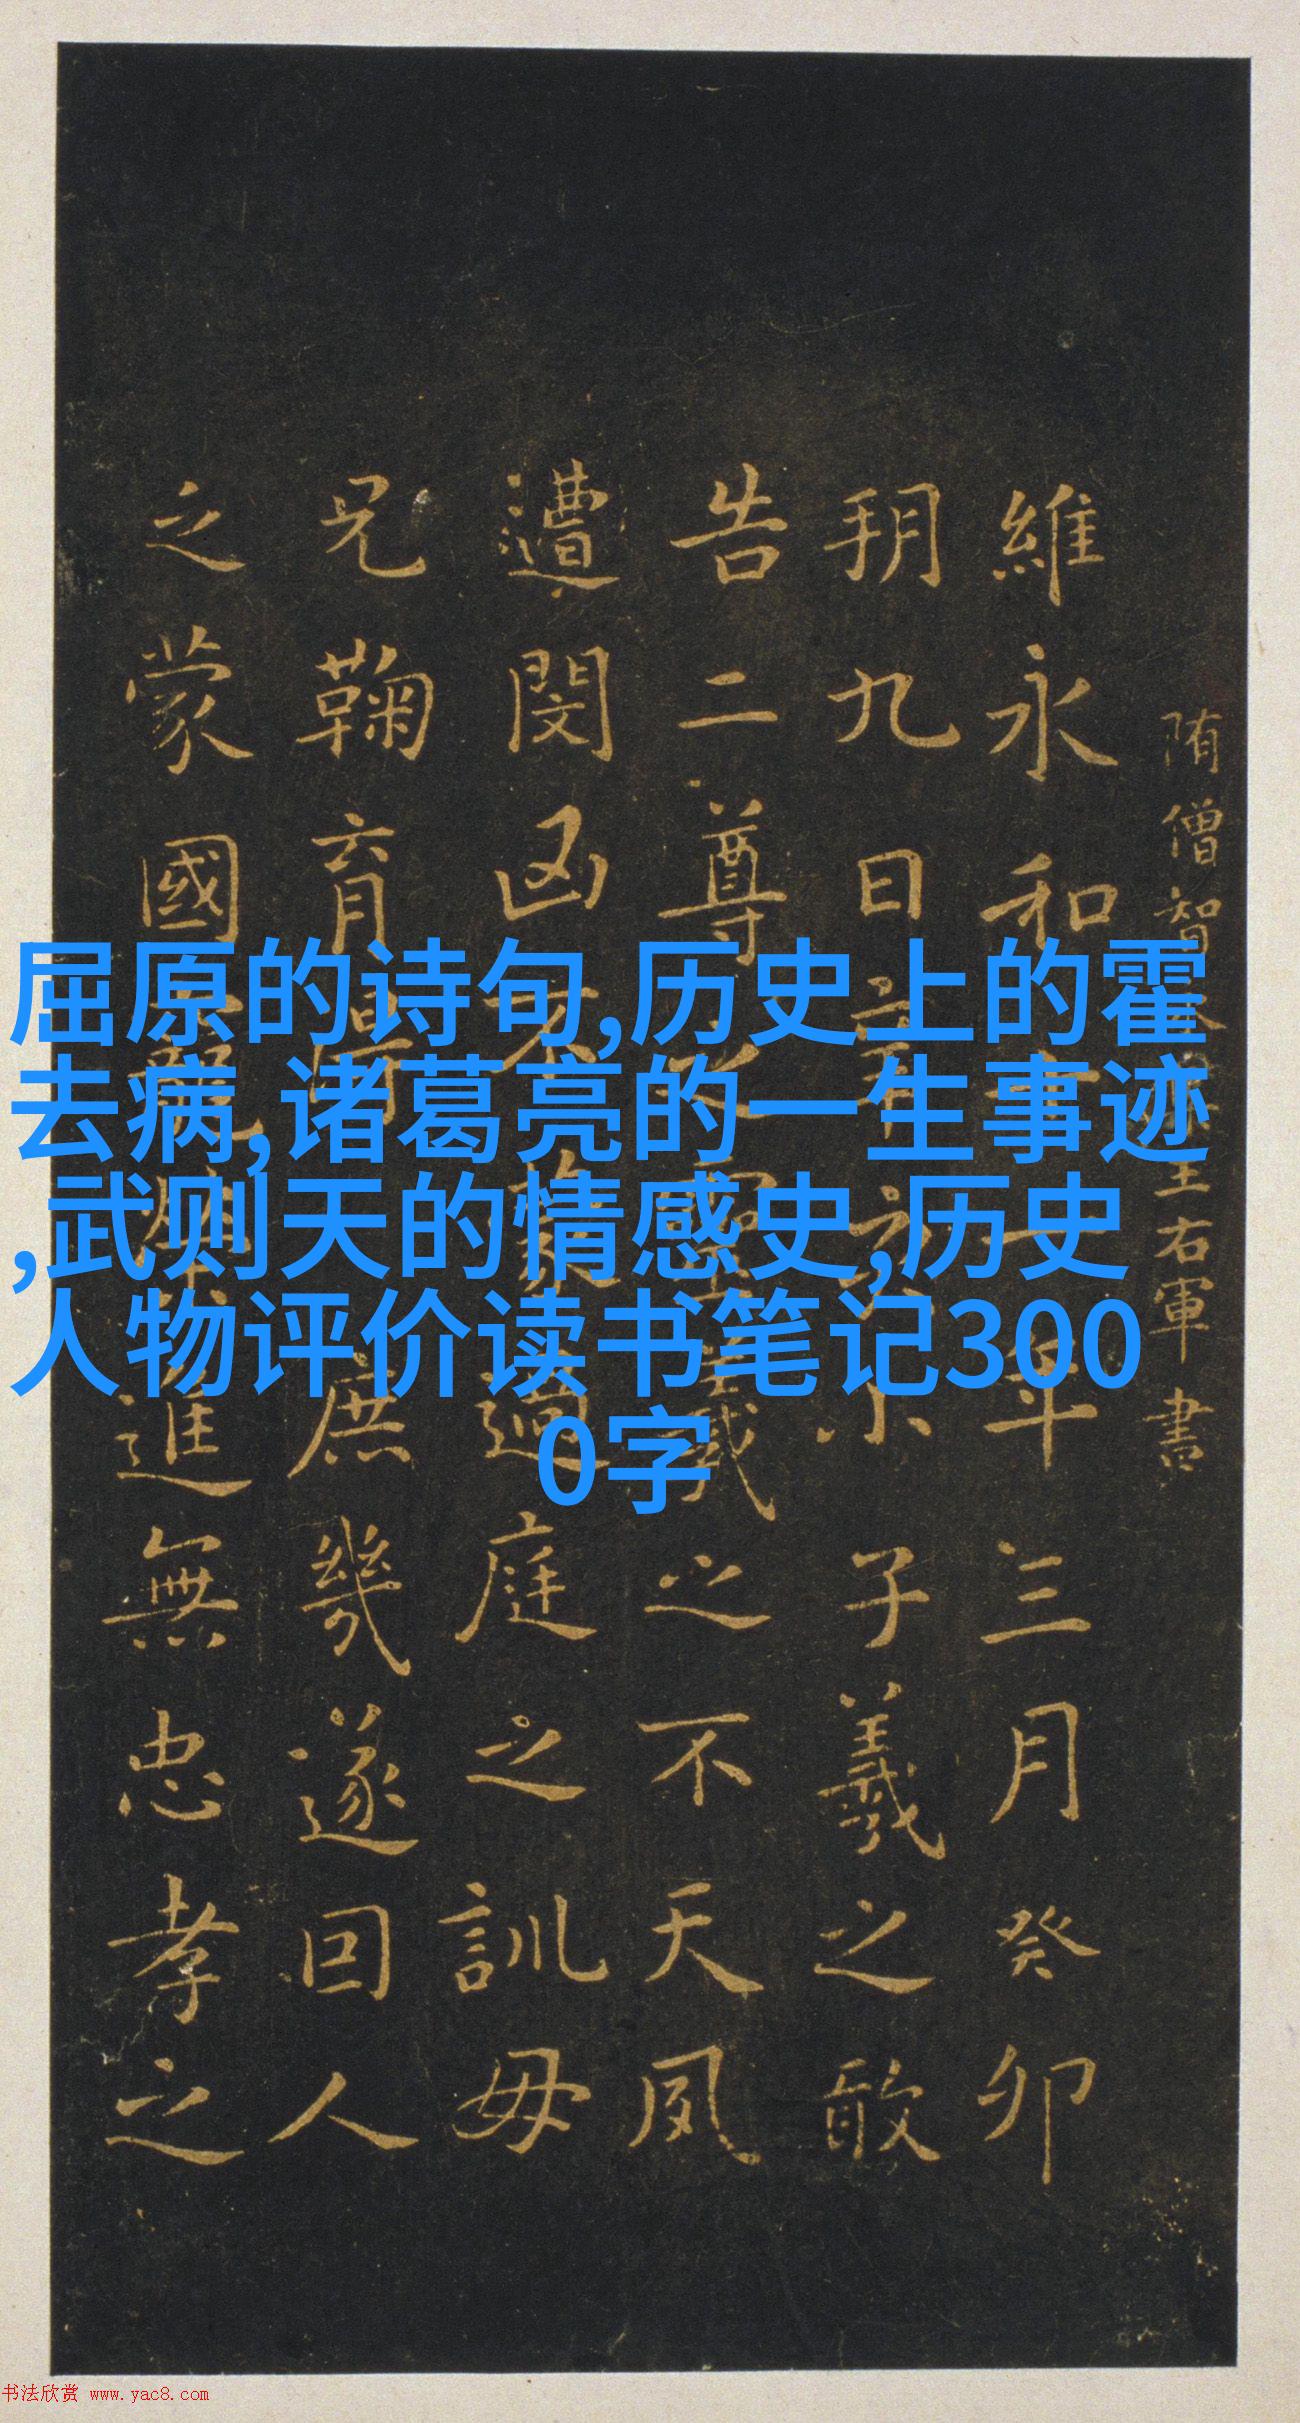 屈原的诗句,历史上的霍
去病,诸葛亮的一生事迹
,武则天的情感史,历史
人物评价读书笔记300
0字
隋僧智王右軍書
維永和年三月癸卯
朔九日小子羲之敢
告二尊羲之不天夙
遭閔凶不過庭之訓毋
兄鞠育得庶幾遂因人
之蒙國進無忠孝之
书法欣赏 www.yac8.com